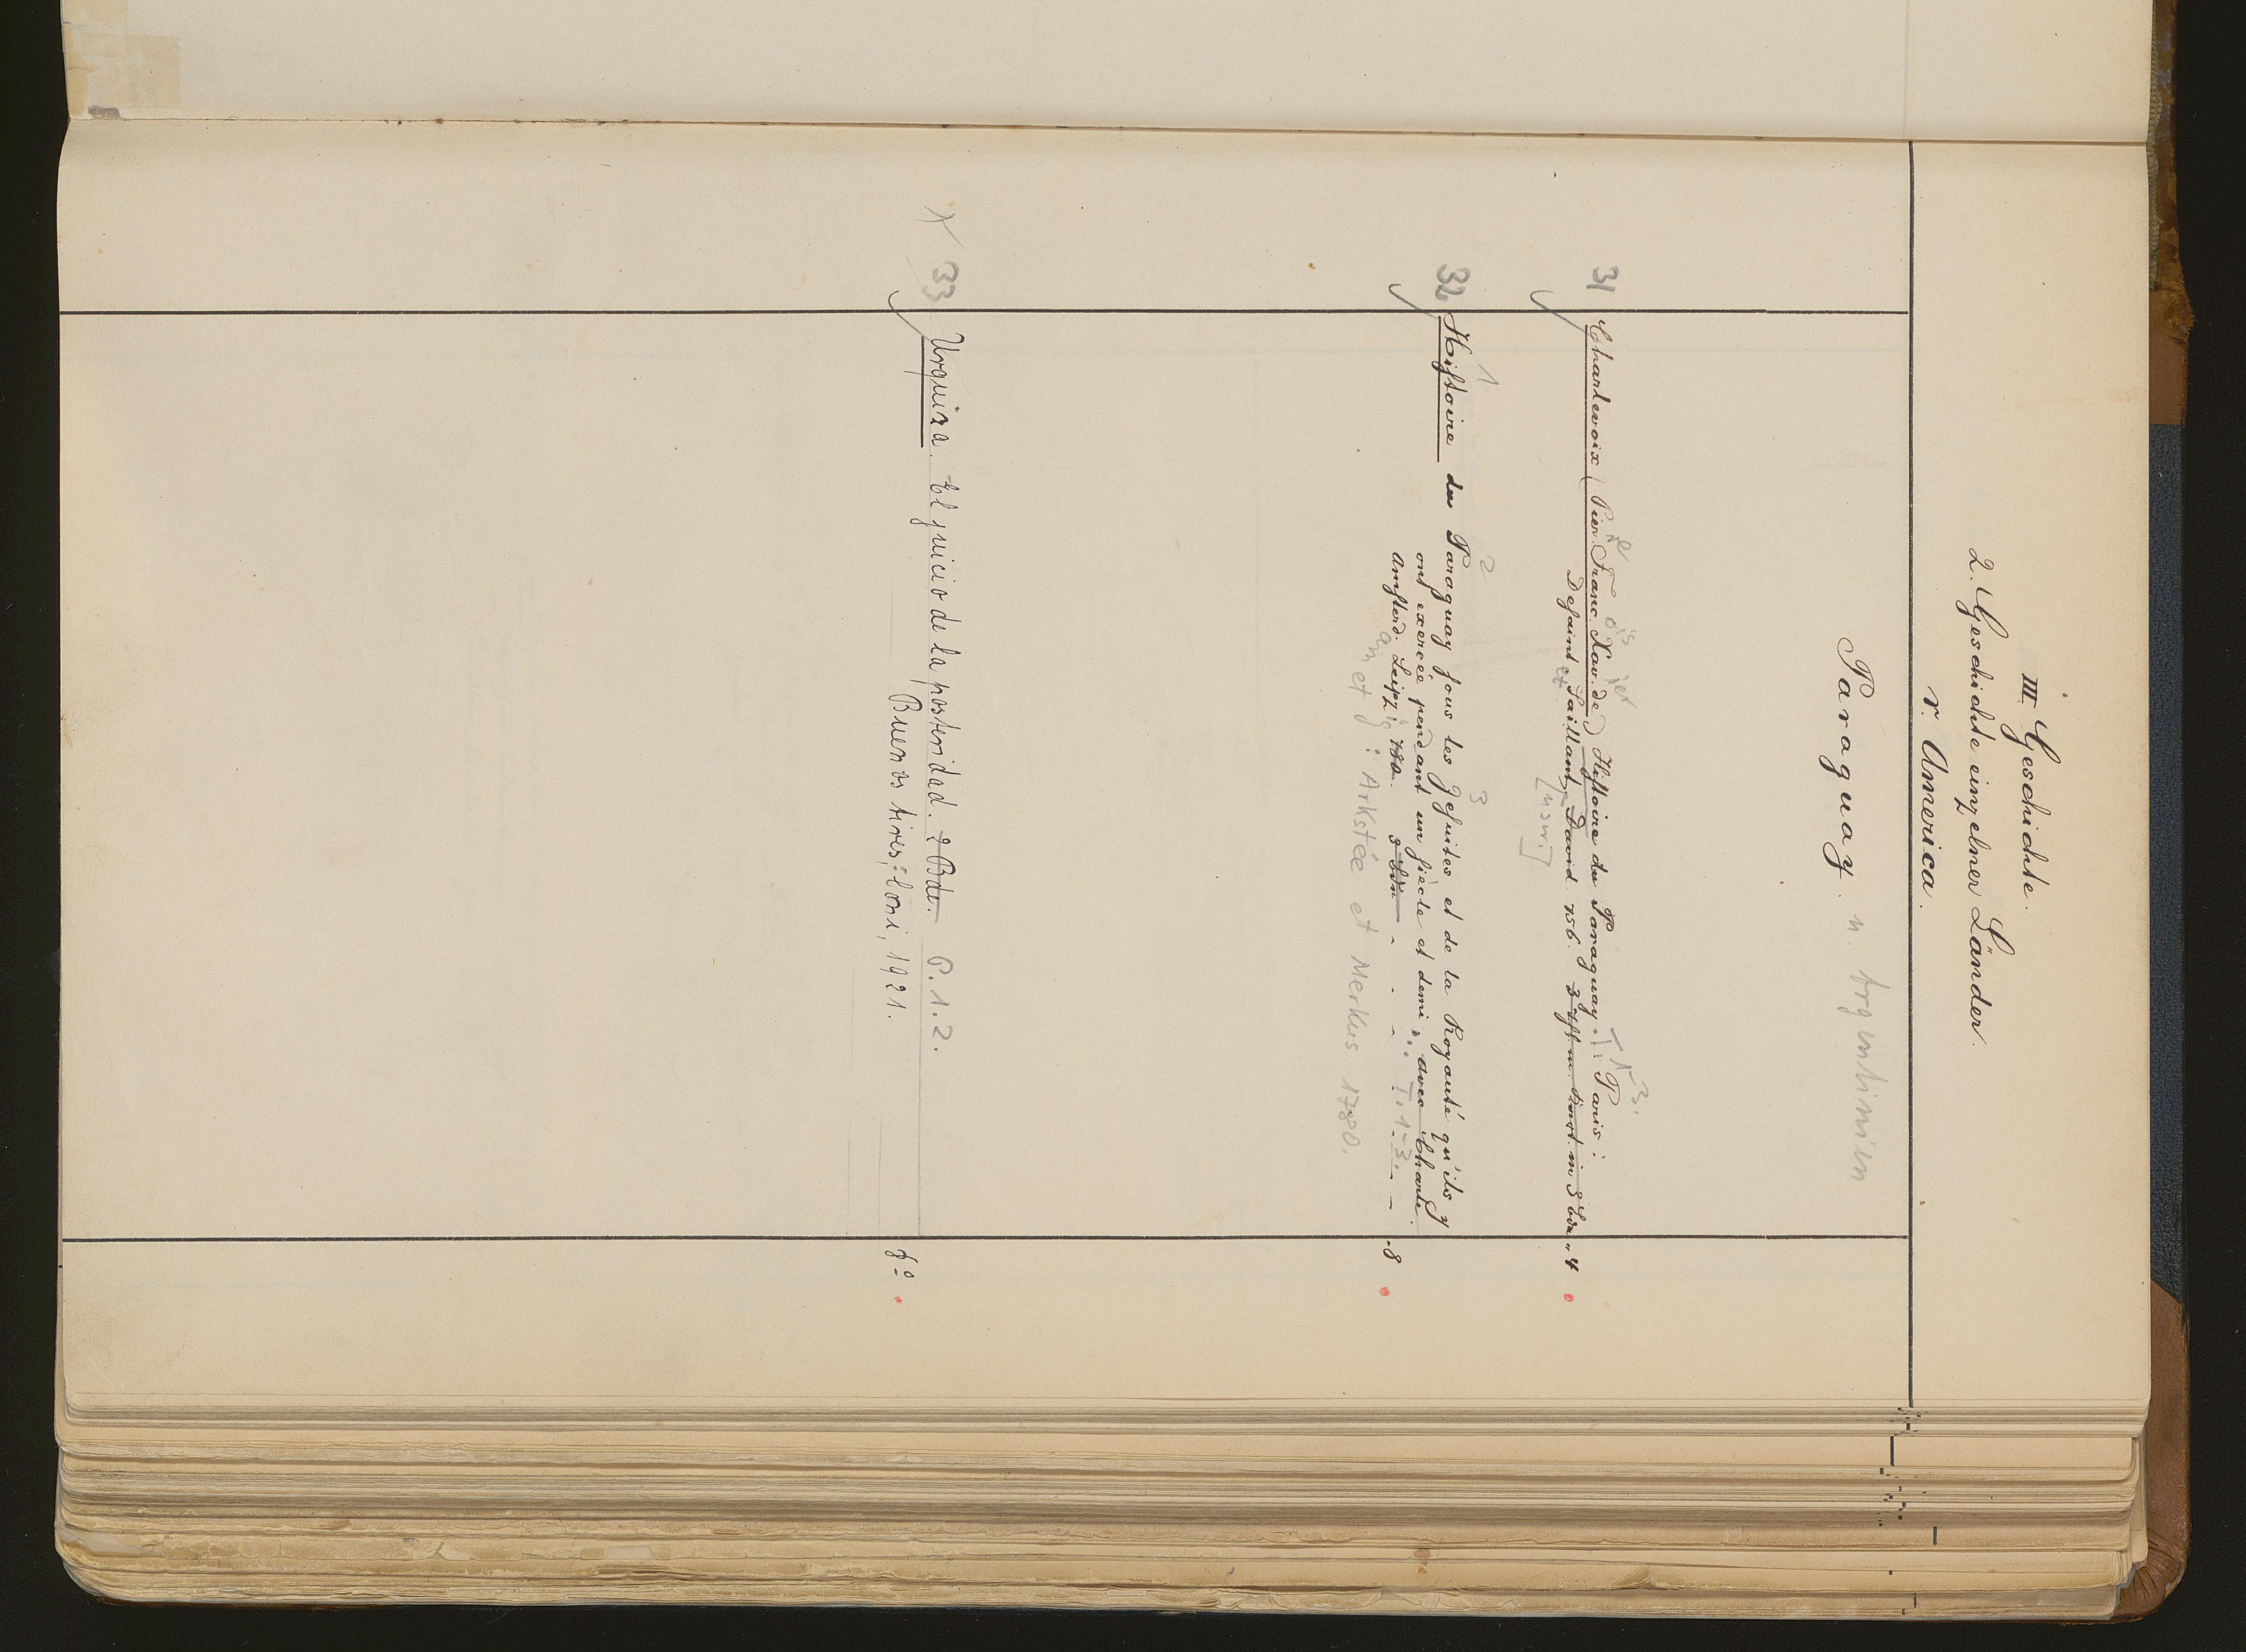 III. Geschichte.
2. Geschichte einzelner Länder.
r. America.
Paraguay. u. Argentinien
31 Charlevoix (Pierre François Xavier de) Hiſtoire du Paraguay. T. 1-3. Paris:
Deſaint et Saillant, David 756. 3 in 3 Bdn „ 4
32 Hiſtoire du Paraguay ſous les Jeſuites et de la Royauté qu'ils y
1 2 3
ont exercée pendant un ſiècle et demi; avec Charte.
Amſterd. Leipz. 780. 3 Bdn - - - T. 1-3. - - -8
am et : Arkstée et Merkus 1780.
33 Urquiza. El juicio de la posteridad. 2 Bde. P. 1. 2.
Buenos Aires: Coni, 1921. 8°